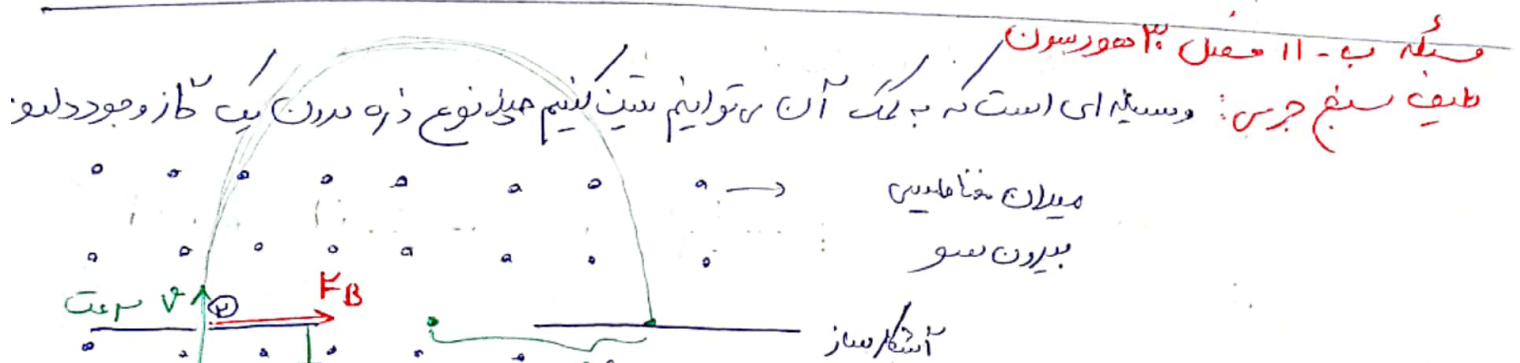 مسئله ب - ۱۱ فصل ۳۰ هودسون
طیف سنج جرمی: وسیله ای است که به کمک آن می توانیم تعیین کنیم چند نوع ذره درون یک گاز وجود دارد
میدان مغناطیسی
بیرون سو
سرعت V
۲
F_B
آشکارساز